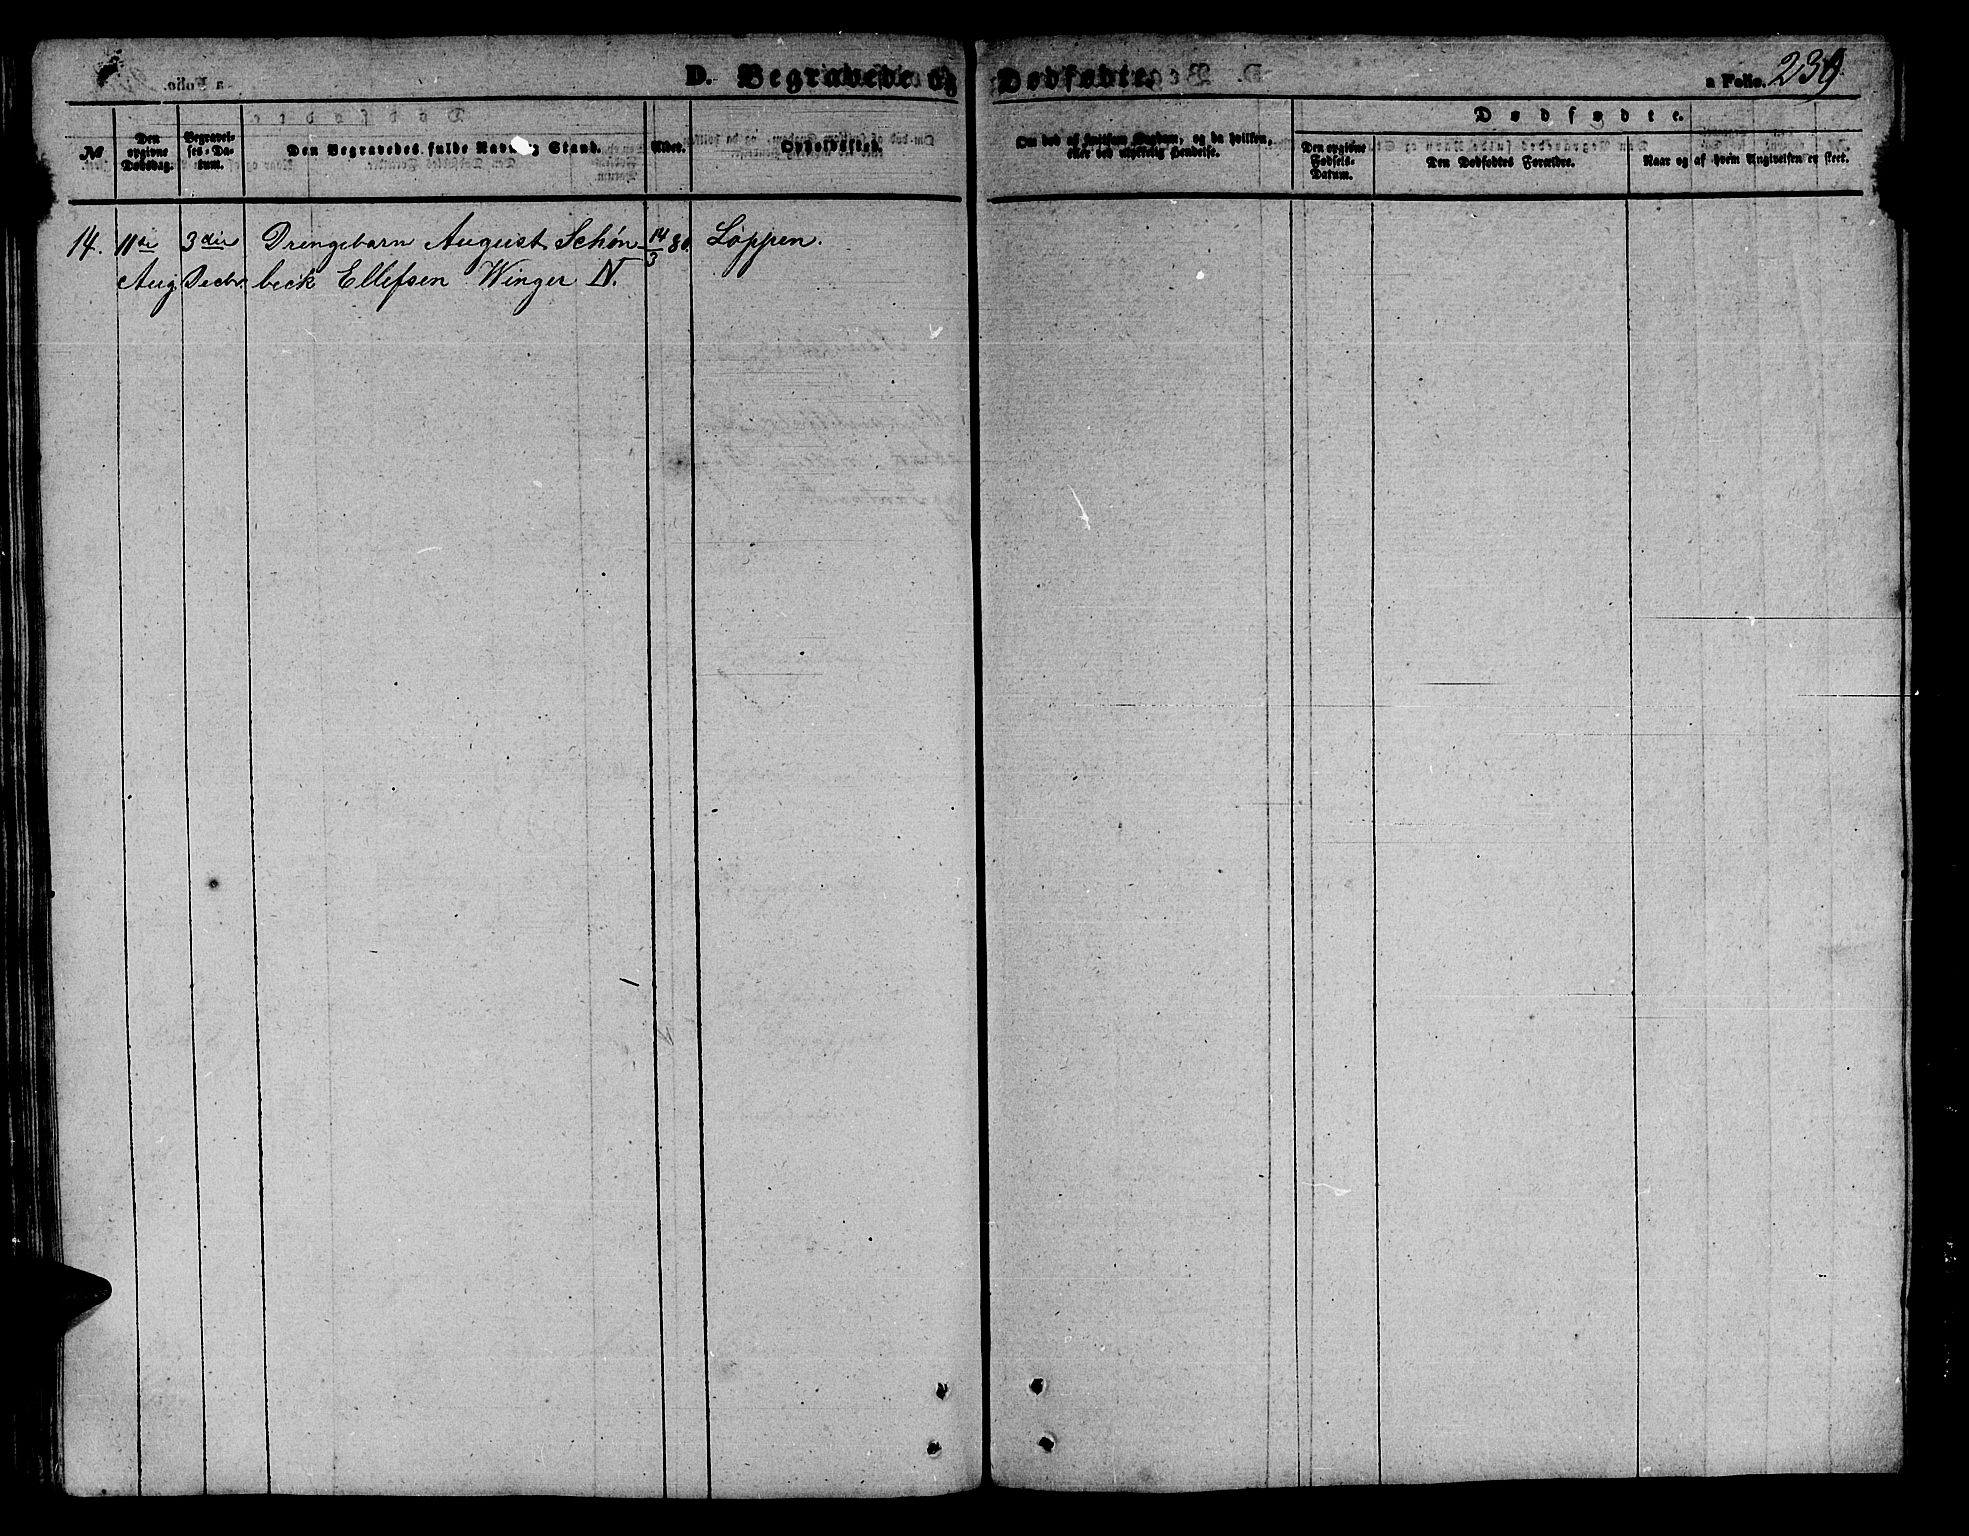 D. Begravede og Dødfødte.
a Folio. 239
№
Den opgivne Dødsdag.
Begravelses-Datum.
Den Begravedes fulde Navn og Stand.
Alder.
Opholdssted.
Om død af smitsom Sygdom, og da hvilken, eller ved ulykkelig Hendelse.
Dødfødte.
Den opgivne Fødsels-Datum.
Den Dødfødtes Forældre.
Naar og af hvem Angivelsen er skeet.
14. 11te 3die Drengebarn August Schøn- 14/3 80. Loppen.
Aug. Decbr. beck Ellefsen Winger N.